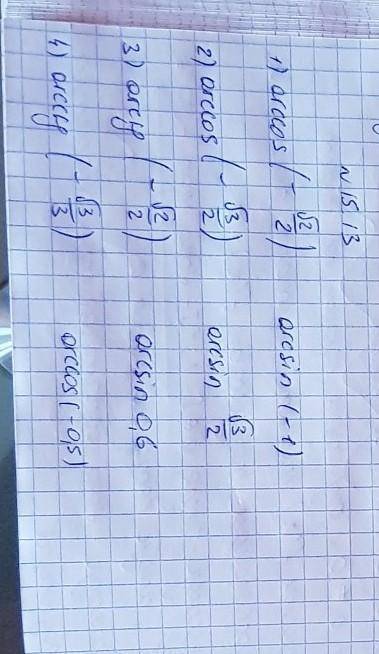 N 15.13
1) arccos (-√2/2) arcsin (-1)
2) arccos (-√3/2) arcsin √3/2
3) arcctg (-√2/2) arcsin 0,6
4) arcctg (-√3/3) arccos (-0,5)